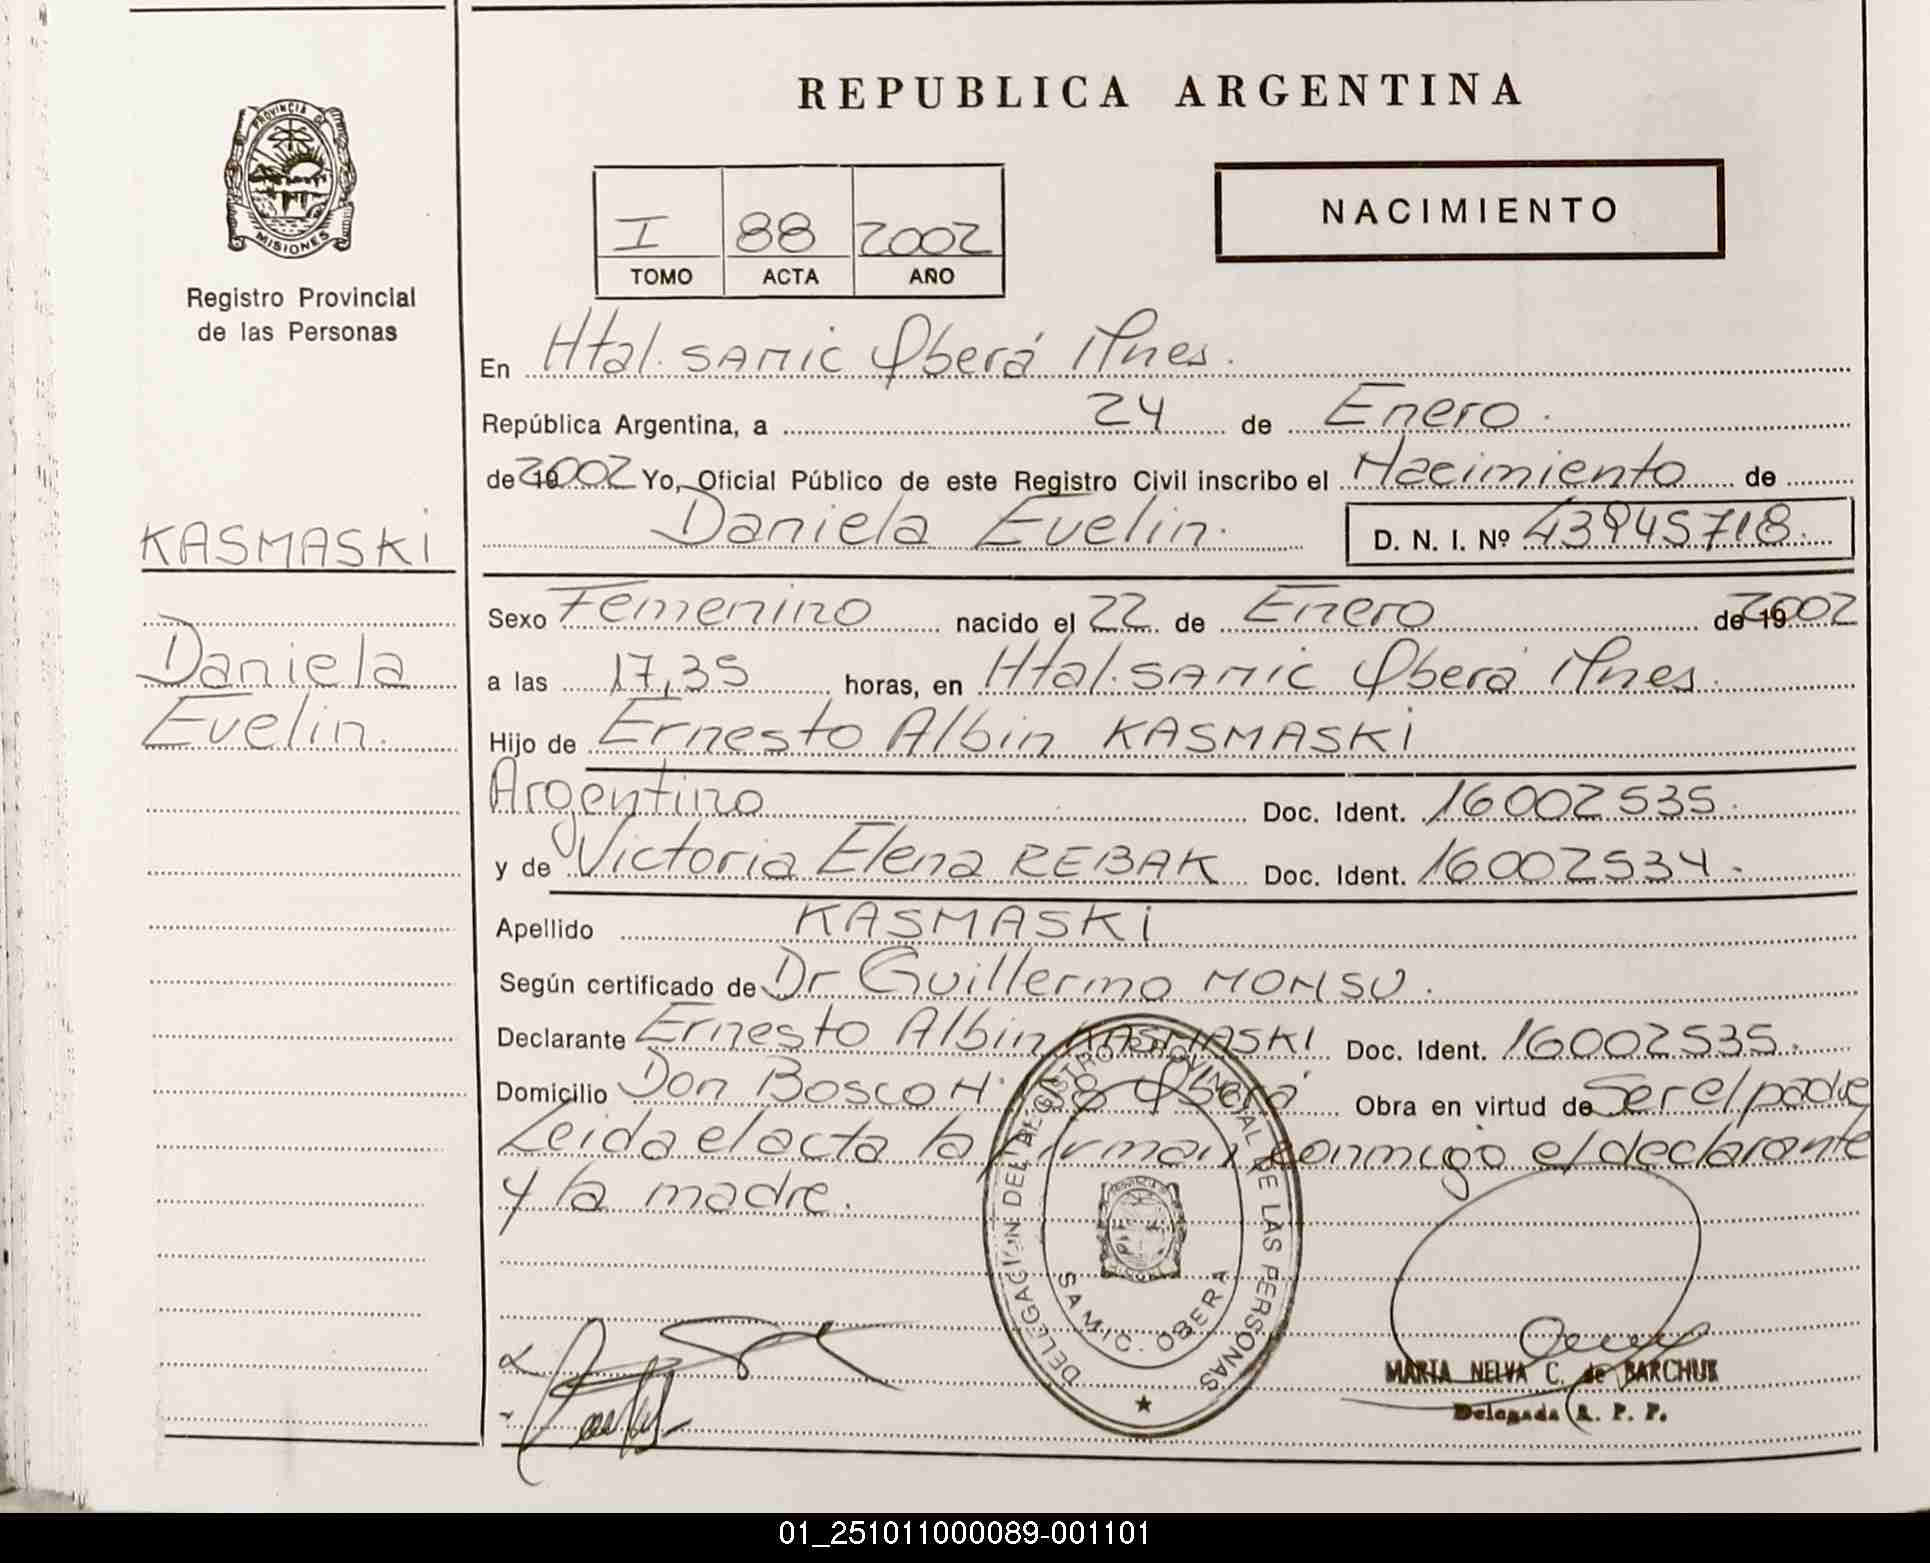 REPUBLICA ARGENTINA
PROVINCIA DE
MISIONES
Registro Provincial
de las Personas
I 88 2002
TOMO ACTA AÑO
NACIMIENTO
En Htal. SAMIC Oberá Mnes.
República Argentina, a 24 de Enero.
de 19 2002 Yo, Oficial Público de este Registro Civil inscribo el Nacimiento de
Daniela Evelin. D. N. I. Nº 43945718
KASMASKi
Daniela
Evelin.
Sexo Femenino nacido el 22 de Enero de 19 2002
a las 17,35 horas, en Htal. SAMIC Oberá Mnes.
Hijo de Ernesto Albin KASMASKi
Argentino Doc. Ident. 16002535.
y de Victoria Elena REBAK Doc. Ident. 16002534.
Apellido KASMASKi
Según certificado de Dr Guillermo MONSU.
Declarante Ernesto Albin KASMASKI Doc. Ident. 16002535.
Domicilio Don Bosco N: Oberá Obra en virtud de Ser el padre
Leida el acta la firman conmigo el declarante
y la madre.
DELEGACION DEL REGISTRO PROVINCIAL DE LAS PERSONAS
SAMIC. OBERA
MARIA NELVA C. de BARCHUK
Delegada R. P. P.
01_251011000089-001101